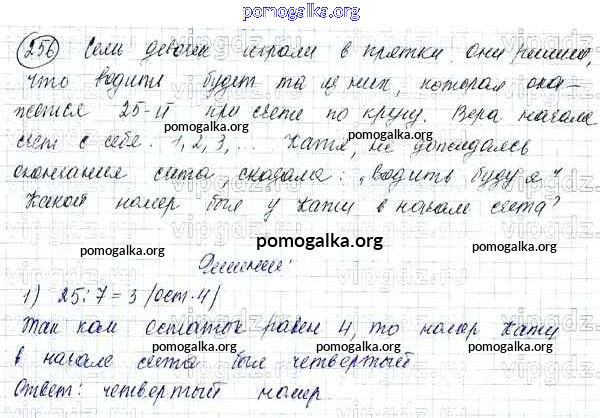 pomogalka.org
256 Семь девочек играли в прятки. Они решили,
что водить будет та из них, которая ока-
жется 25-й при счете по кругу. Вера начала
pomogalka.org
счет с себя. 1, 2, 3, ... Катя, не дожидаясь
pomogalka.org
окончания счета, сказала: "Водить буду я"
Какой номер был у Кати в начале счета?
pomogalka.org pomogalka.org pomogalka.org
Решение:
1) 25:7=3 (ост.4)
Так как остаток равен 4, то номер Кати
pomogalka.org
в начале счета был четвертый.
Ответ: четвертый номер.